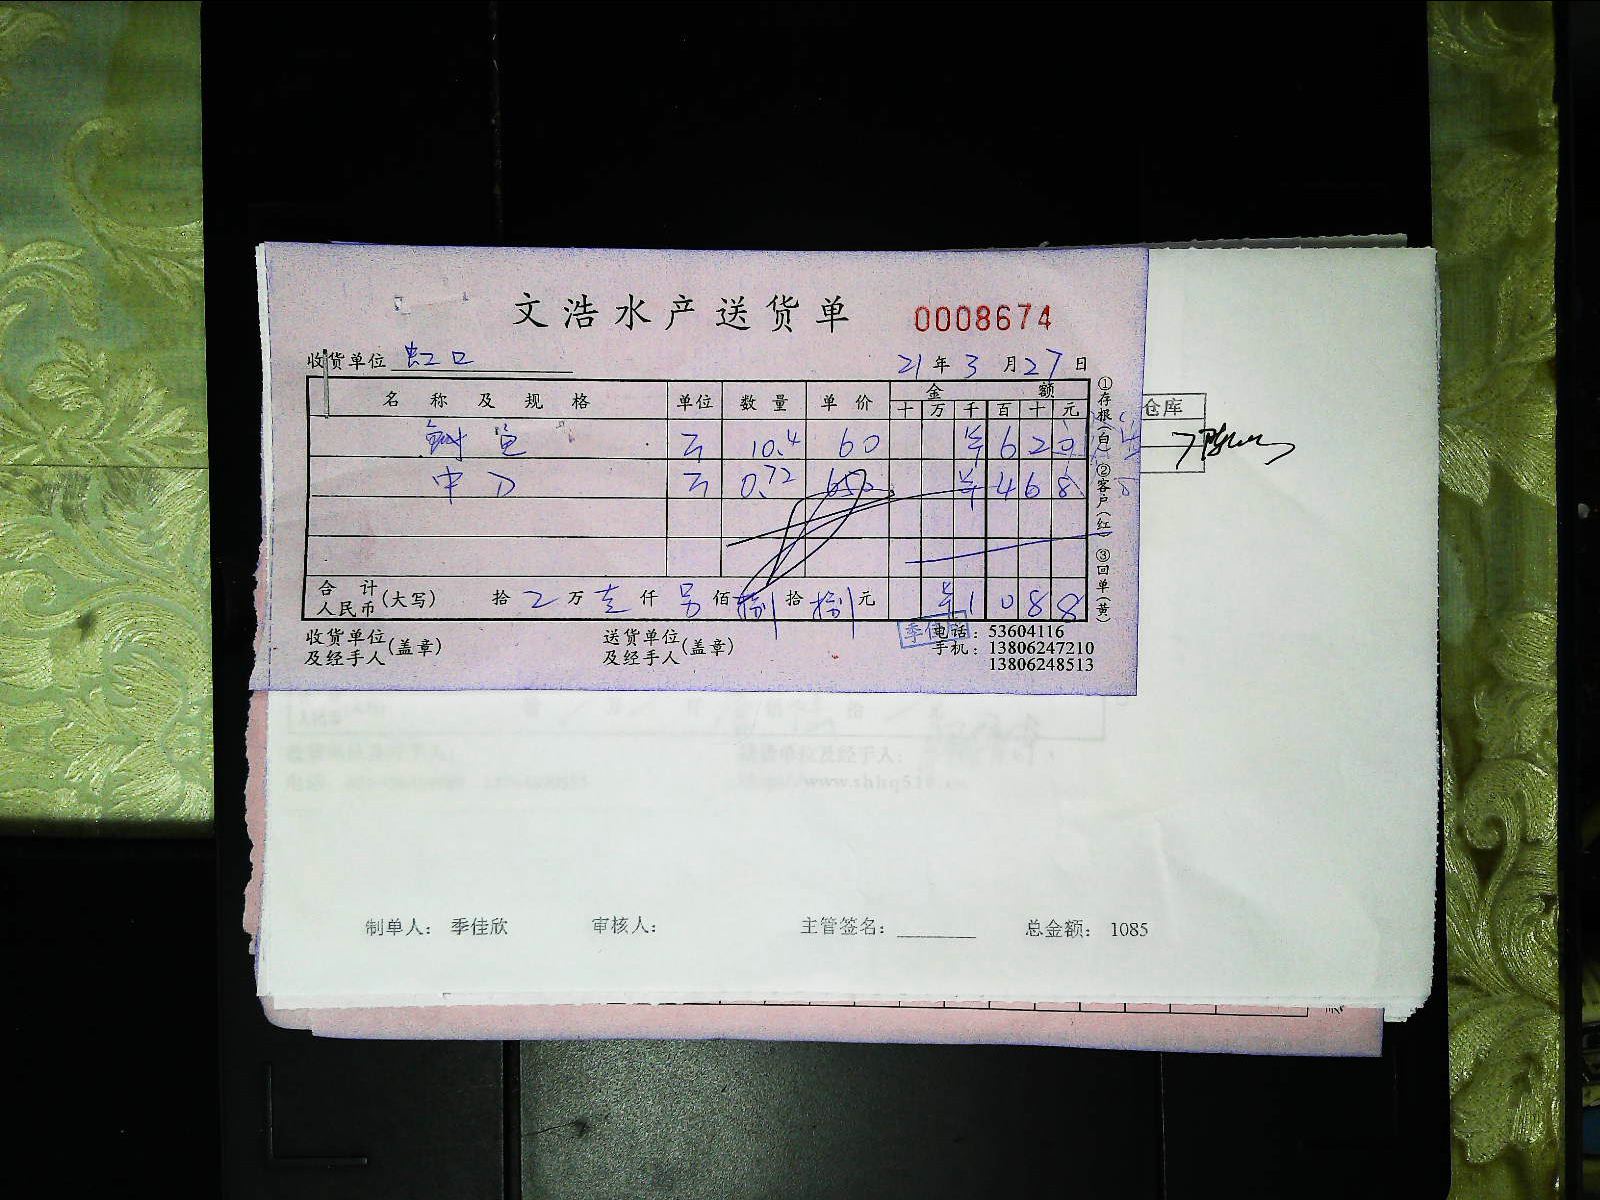 文浩水产送货单 0008674
收货单位 虹口 21年3月27日
名称及规格 单位 数量 单价 金额
十 万 千 百 十 元
鱼 10.4 60 ¥ 6 2 0
中 刀 0.72 650 ¥ 4 6 8
合计人民币(大写) 拾 万 壹 仟 另 佰 捌 拾 捌 元 ¥ 1 0 8 8
①存根(白) ②客户(红) ③回单(黄)
收货单位及经手人(盖章) 送货单位及经手人(盖章) 电话：53604116
手机：13806247210
13806248513
仓库
制单人： 季佳欣 审核人： 主管签名： 总金额： 1085